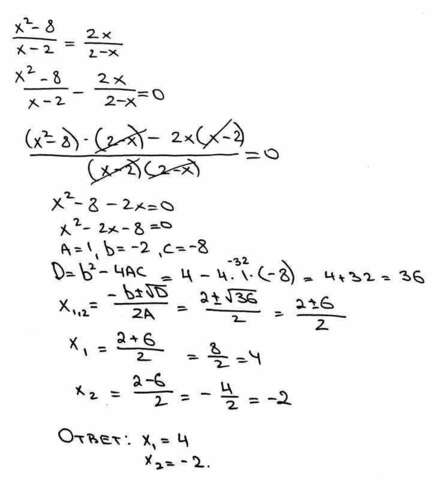 x²-8/x-2 = 2x/2-x
x²-8/x-2 - 2x/2-x = 0
(x²-8)·(2-x) - 2x(x-2)/(x-2)(2-x) = 0
x²-8-2x=0
x²-2x-8=0
A=1, b=-2, c=-8
-32
D=b²-4AC = 4-4·1·(-8) = 4+32 = 36
x₁,₂ = -b±√D/2A = 2±√36/2 = 2±6/2
x₁ = 2+6/2 = 8/2 = 4
x₂ = 2-6/2 = -4/2 = -2
Ответ: x₁=4
x₂=-2.